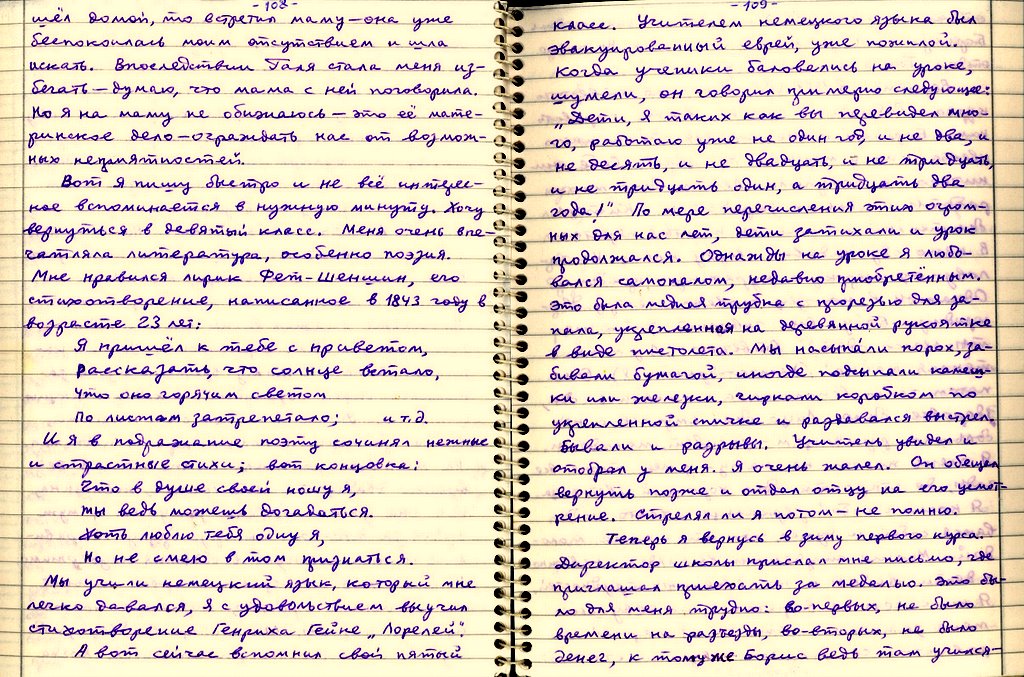 -108-
шёл домой, то встретил маму – она уже
беспокоилась моим отсутствием и шла
искать. Впоследствии Галя стала меня из-
бегать – думаю, что мама с ней поговорила.
Но я на маму не обижаюсь – это её мате-
ринское дело – ограждать нас от возмож-
ных неприятностей.
Вот я пишу быстро и не всё интерес-
ное вспоминается в нужную минуту. Хочу
вернуться в девятый класс. Меня очень впе-
чатляла литература, особенно поэзия.
Мне нравился лирик Фет-Шеншин, его
стихотворение, написанное в 1843 году в
возрасте 23 лет:
Я пришёл к тебе с приветом,
рассказать, что солнце встало,
Что оно горячим светом
По листам затрепетало; и т.д.
И я в подражание поэту сочинял нежные
и страстные стихи; вот концовка:
Что в душе своей ношу я,
ты ведь можешь догадаться.
Хоть люблю тебя одну я,
Но не смею в том признаться.
Мы учили немецкий язык, который мне
легко давался, я с удовольствием выучил
стихотворение Генриха Гейне „Лорелей".
А вот сейчас вспомнил свой пятый
-109-
класс. Учителем немецкого языка был
эвакуированный еврей, уже пожилой.
Когда ученики баловались на уроке,
шумели, он говорил примерно следующее:
„Дети, я таких как вы перевидел мно-
го, работаю уже не один год, и не два, и
не десять, и не двадцать, и не тридцать,
и не тридцать один, а тридцать два
года!" По мере перечисления этих огром-
ных для нас лет, дети затихали и урок
продолжался. Однажды на уроке я любо-
вался самопалом, недавно приобретённым.
Это была медная трубка с прорезью для за-
пала, укрепленная на деревянной рукоятке
в виде пистолета. Мы насыпали порох, за-
бивали бумагой, иногда подсыпали камеш-
ки или железки, чиркали коробком по
укрепленной спичке и раздавался выстрел.
Бывали и разрывы. Учитель увидел и
отобрал у меня. Я очень жалел. Он обещал
вернуть позже и отдал отцу на его усмот-
рение. Стрелял ли я потом – не помню.
Теперь я вернусь в зиму первого курса.
Директор школы прислал мне письмо, где
приглашал приехать за медалью. Это бы-
ло для меня трудно: во-первых, не было
времени на разъезды, во-вторых, не было
денег, к тому же Борис ведь там учился-